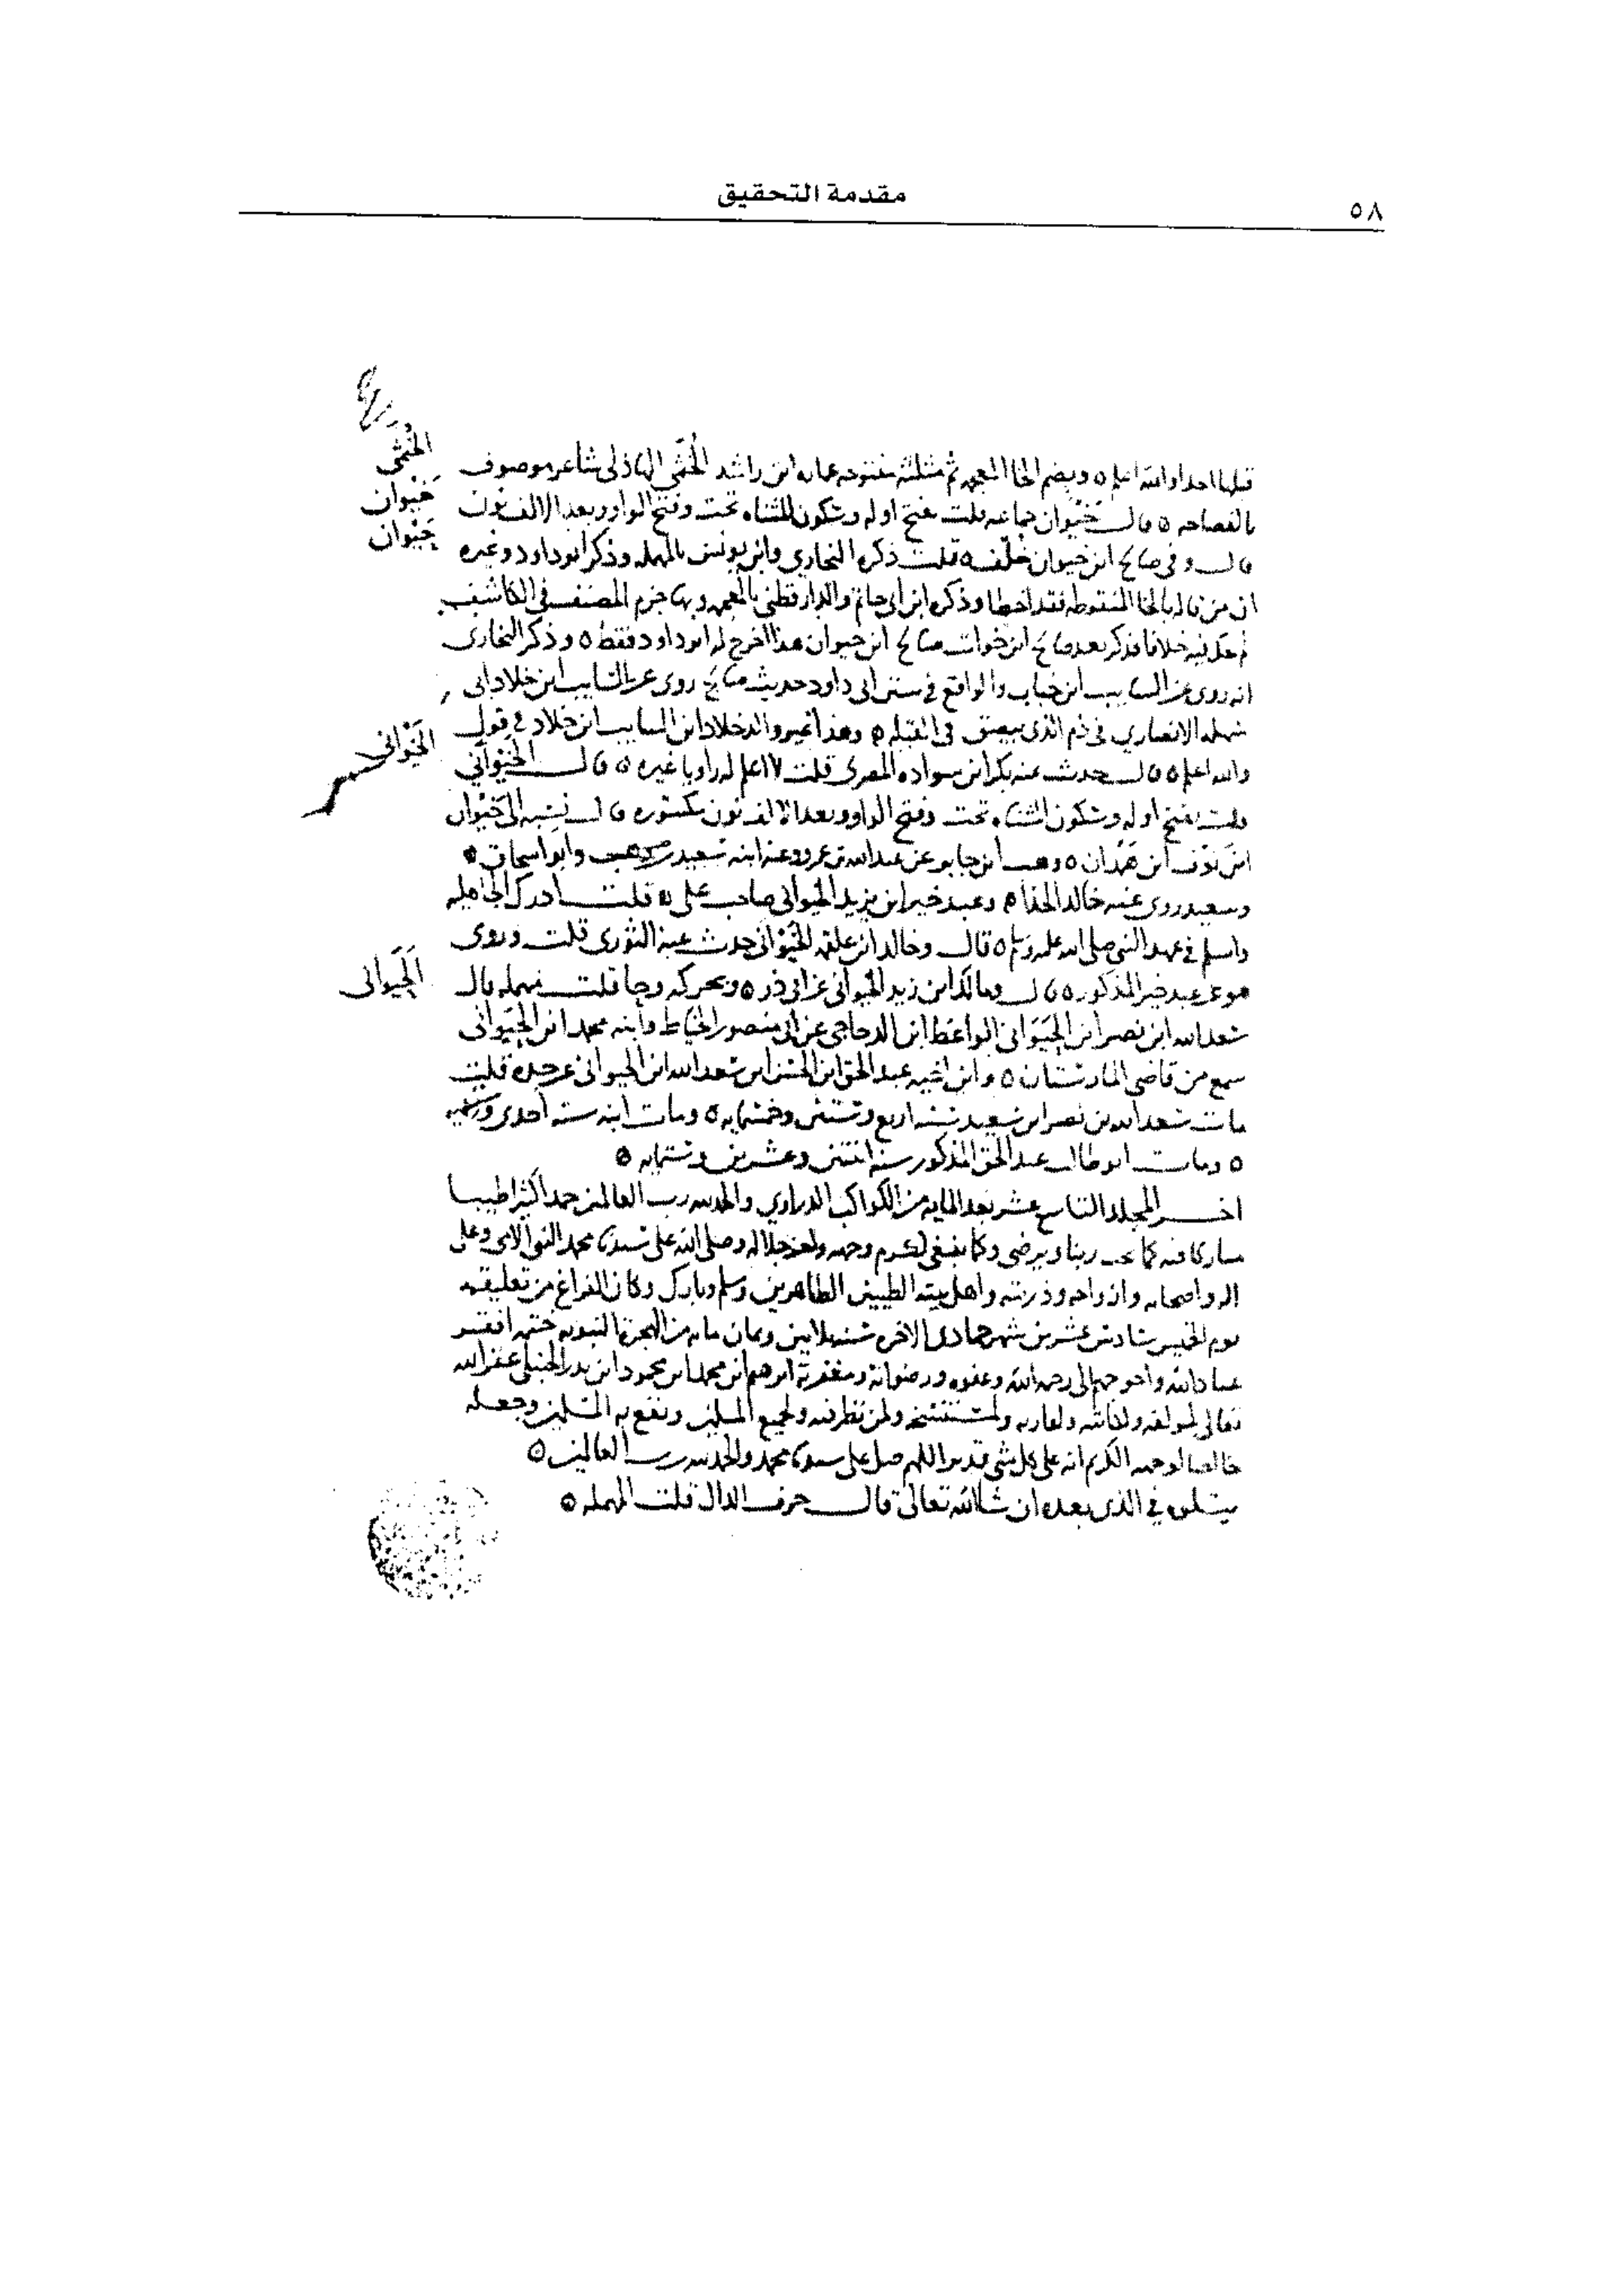 مقدمة التحقيق
٥٨
الخُثَمى
خَيْوان
حَيْوان
قبلها احدا والله اعلم ٥ وبضم الخا المعجمه ثم مثلثه مفتوحه عماره ابن راشد الخُثَمى شاعر موصوف
بالفصاحه ٥ قال خَيْوان جماعه قلت بفتح اوله وسكون المثناه تحت وفتح الواو وبعد الالف نون
قال وفي صالح ابن خيوان خُلف ٥ قلت ذكره البخاري وابن يونس بالمهمله وذكر ابو داود وغيره
ان من قاله بالخا المنقوطه فقد اخطا وذكره ابن ابي حاتم والدارقطني بالمعجمه وبها جزم المصنف في الكاشف
خلافا فذكر بعد صالح ابن خوات صالح ابن خيوان هذا اخرج له ابو داود فقط ٥ وذكر البخاري
انه روى عن السايب ابن خباب والواقع في سنن ابي داود حديث صالح روى عن السايب ابن خلاد ابي
سهله الانصاري في ذم الذي يبصق في القبله ٥ وهذا والد خلاد ابن السايب ابن خلاد في قول
والله اعلم ٥ قال حدث عنه بكر ابن سواده المصري قلت لا اعلم له راويا غيره ٥ قال الخَيْواني
الخَيْوانى
قلت بفتح اوله وسكون المثناه تحت وفتح الواو وبعد الالف نون مكسوره قال نسبه الى خَيْوان
ابن نوف ابن همدان ٥ وهب ابن جابر عن عبد الله بن عمرو وعنه ابنه سعيد بن وهب وابو اسحاق ٥
وسعيد روى عنه خالد الحذا ٥ وعبد خير ابن يزيد الخيواني صاحب علي ٥ قلت ادرك الجاهليه
واسلم في عهد النبي صلى الله عليه وسلم ٥ قال وخالد ابن علقمه الخَيْواني حدث عنه الثوري قلت وروى
هو عن عبد خير المذكور ٥ قال ومالك ابن زيد الخيواني عن ابي ذر ٥ وبحركه وحا قلت مهمله قال
الحَيَوانى
سعد الله ابن نصر ابن الحَيَواني الواعظ ابن الدجاجي عن ابي منصور الخياط وابنه محمد ابن الحَيَواني
سمع من قاضي المارستان ٥ وابن اخيه عبد الحق ابن الحسن ابن سعد الله ابن الحيواني عن جده قلت
مات سعد الله بن نصر ابن سعيد سنه اربع وستين وخمسمايه ٥ ومات ابنه سنه احدى وستميه
٥ ومات ابو طالب عبد الحق المذكور سنه اثنتين وعشرين وستمايه ٥
اخر المجلد التاسع عشر بعد المايه من الكواكب الدراري والحمد لله رب العالمين حمدا كثيرا طيبا
مباركا فيه كما يحب ربنا ويرضى وكما ينبغي لكرم وجهه ولعز جلاله وصلى الله على سيدنا محمد النبي الامي وعلى
اله واصحابه وازواجه وذريته واهل بيته الطيبين الطاهرين وسلم وبارك وكان الفراغ من تعليقه
يوم الخميس سادس عشرين شهر جمادى الاخره سنه ثلاثين وثمان مايه من الهجرة النبويه ختمه افقر
عباد الله واحوجهم الى رحمة الله وعفوه ورضوانه ومغفرته ابرهيم ابن محمد ابن محمود ابن بدر الحنبلي غفر الله
تعالى لمولفه ولكاتبه ولقاريه ولمستنسخه ولمن نظر فيه ولجميع المسلمين ونفع به المسلمين وجعله
خالصا لوجهه الكريم انه على كل شي قدير اللهم صل على سيدنا محمد والحمد لله رب العالمين ٥
يتلوه في الذي بعده ان شا الله تعالى قال حرف الدال قلت المهمله ٥